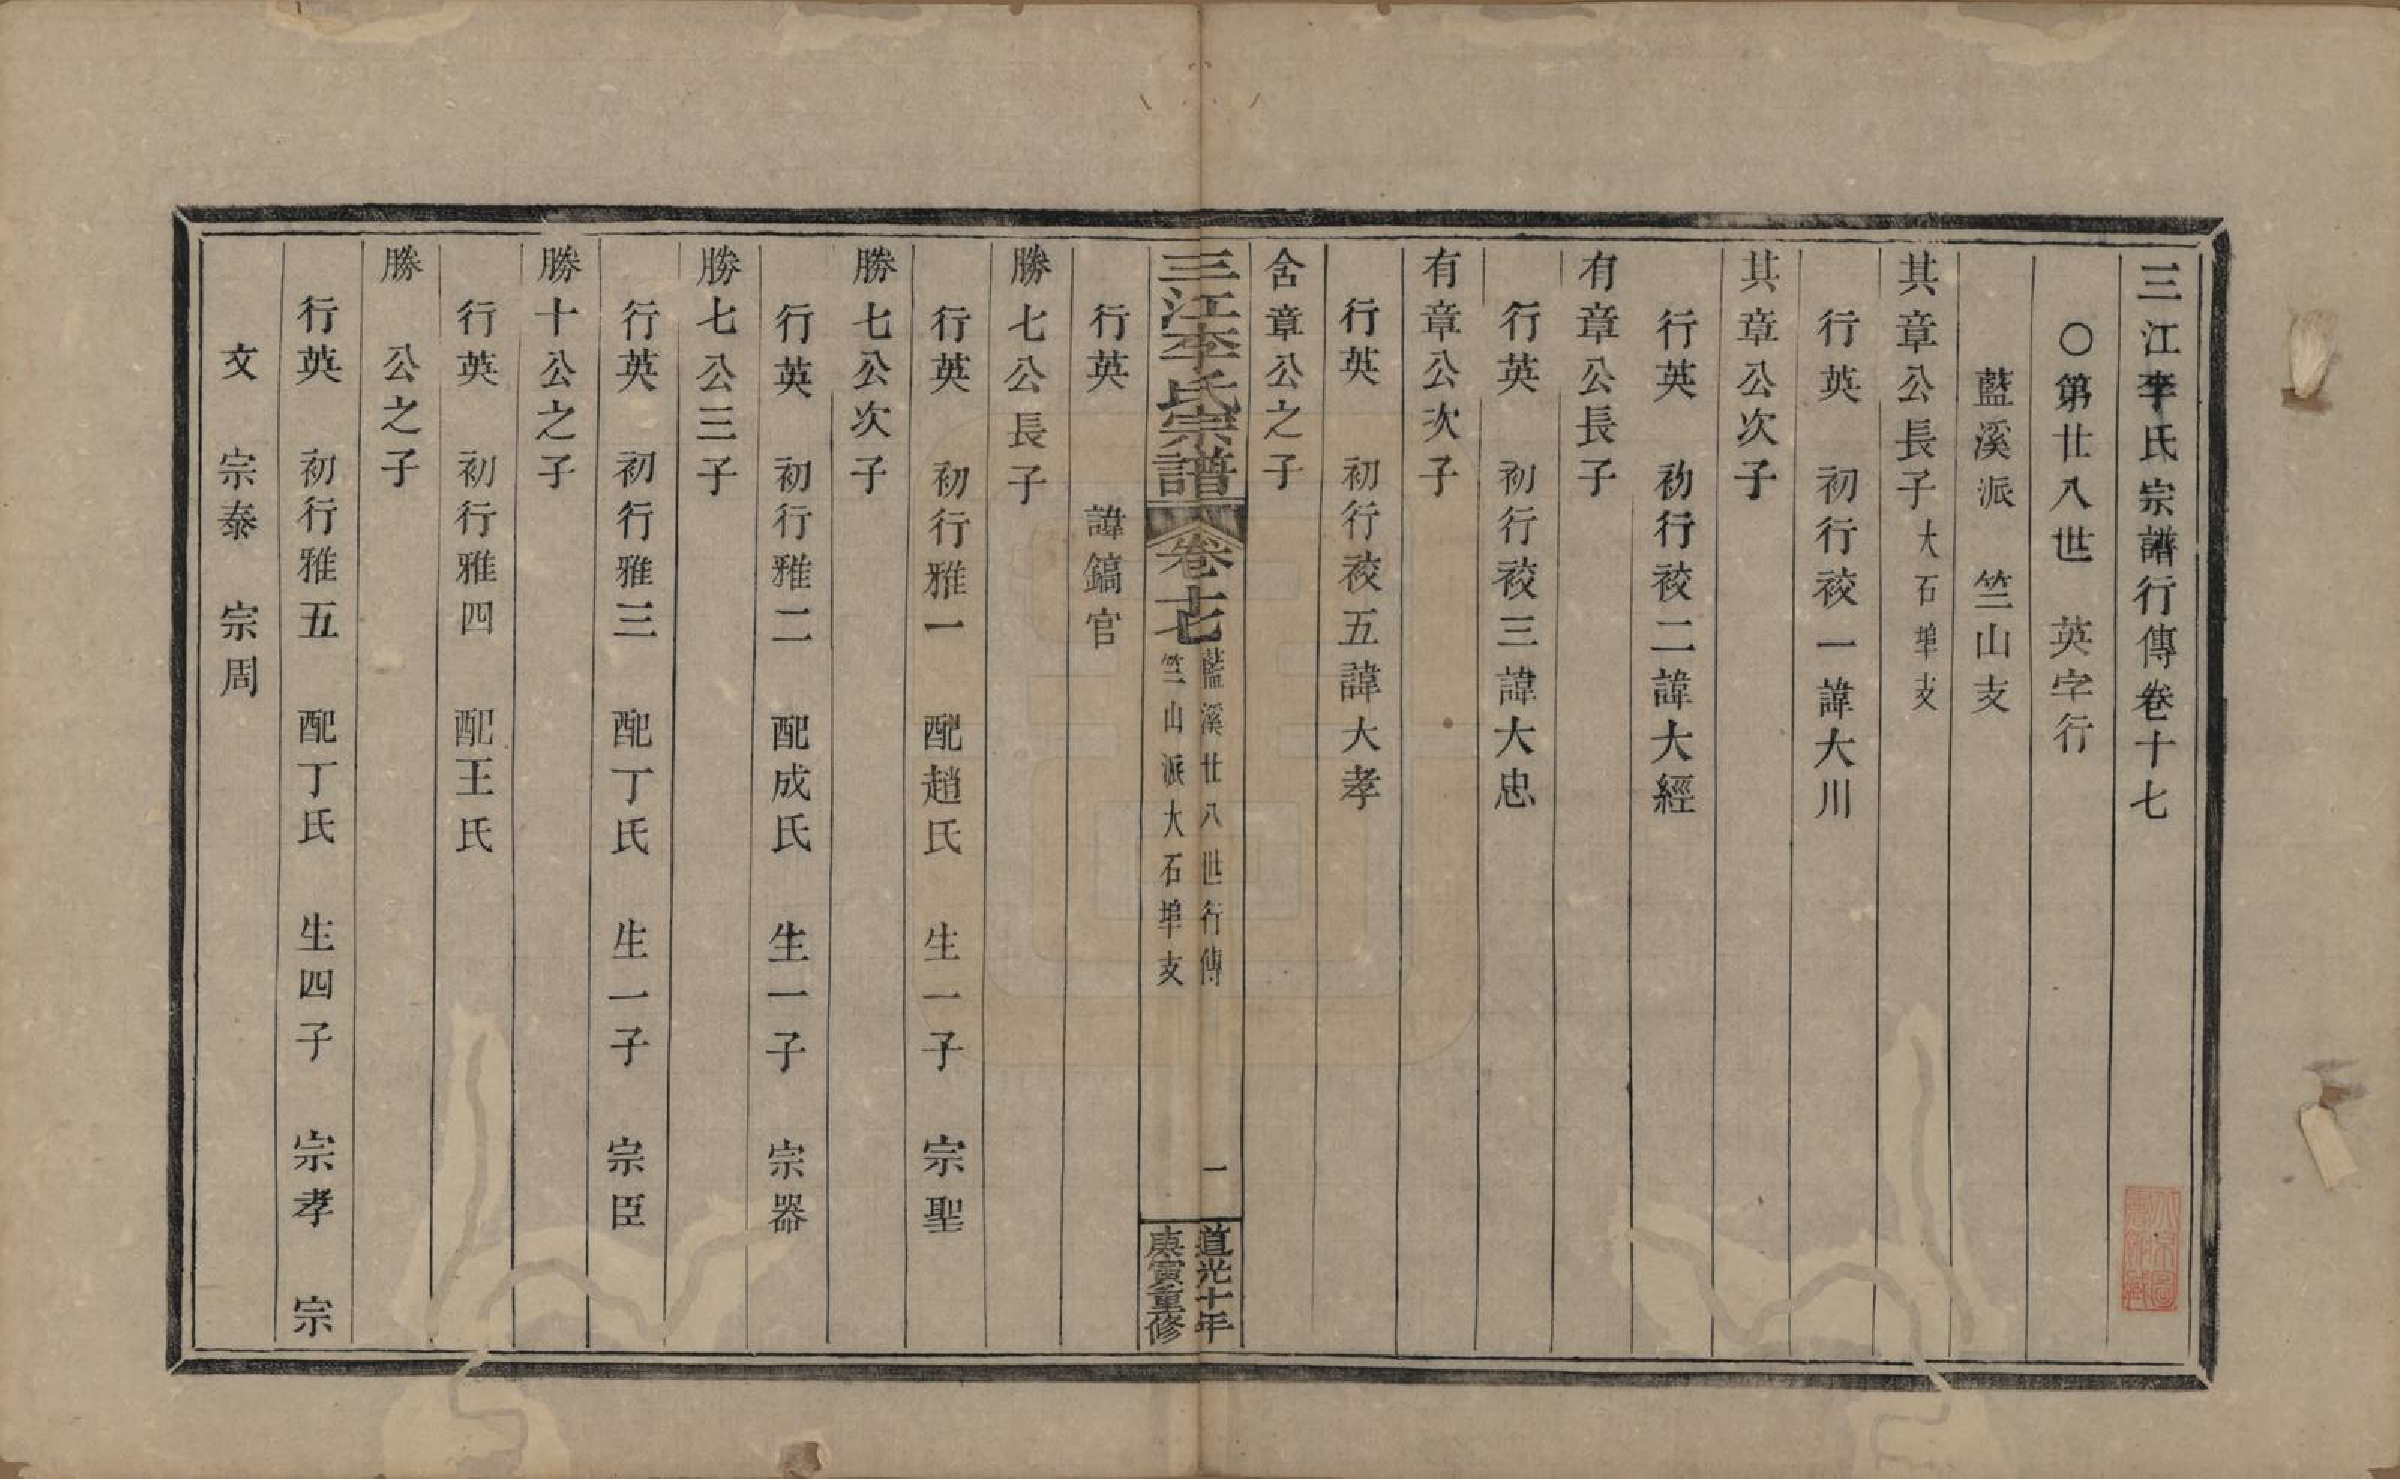 三江李氏宗譜行傳卷十七
〇第廿八世　英字行
藍溪派　竺山支
其章公長子大石埠支
行英　初行祾一諱大川
其章公次子
行英　初行祾二諱大經
有章公長子
行英　初行祾三諱大忠
有章公次子
行英　初行祾五諱大孝
含章公之子
三江李氏宗譜　卷十七　藍溪廿八世行傳
竺山派大石埠支　一
道光十年
庚寅重修
行英　　諱鎬官
勝七公長子
行英　初行雅一　配趙氏　生一子　宗聖
勝七公次子
行英　初行雅二　配成氏　生一子　宗器
勝七公三子
行英　初行雅三　配丁氏　生一子　宗臣
勝十公之子
行英　初行雅四　配王氏
勝　公之子
行英　初行雅五　配丁氏　生四子　宗孝　宗
文　宗泰　宗周